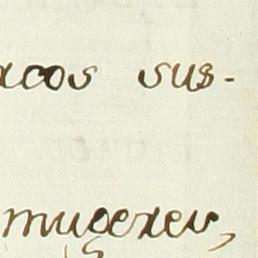 acos sus-
mugeres,